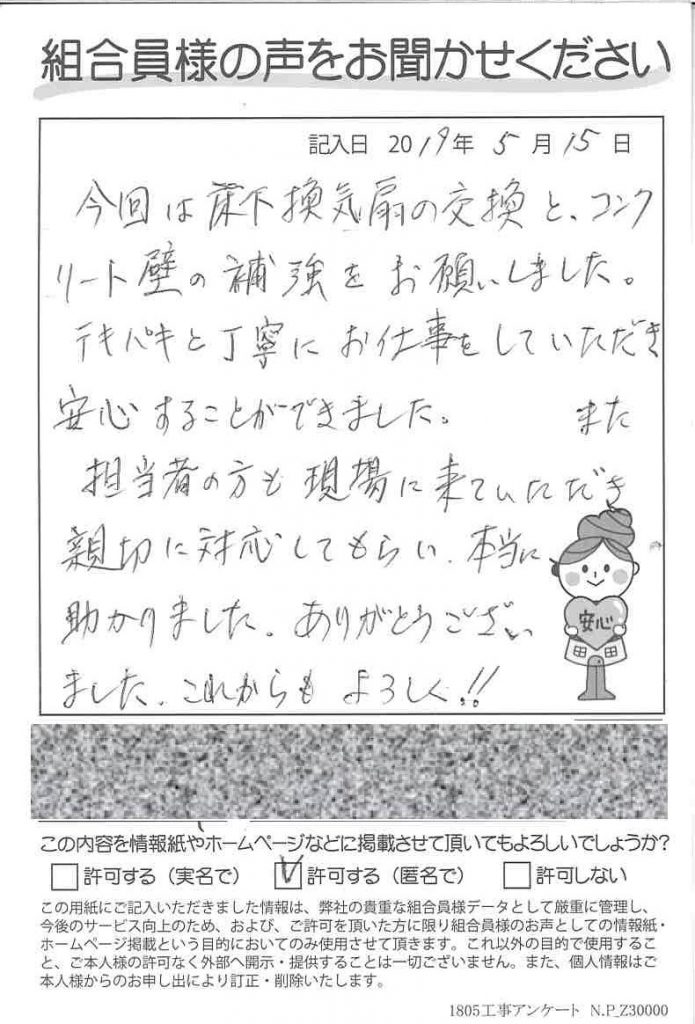 組合員様の声をお聞かせください
記入日 2019年 5月 15日
今回は床下換気扇の交換と、コンク
リート壁の補強をお願いしました。
テキパキと丁寧にお仕事をしていただき
安心することができました。 また
担当者の方も現場に来ていただき
親切に対応してもらい、本当に
助かりました。ありがとうござい
ました。これからもよろしく!!
安心
この内容を情報紙やホームページなどに掲載させて頂いてもよろしいでしょうか?
許可する(実名で) 許可する(匿名で) 許可しない
この用紙にご記入いただきました情報は、弊社の貴重な組合員様データとして厳重に管理し、
今後のサービス向上のため、および、ご許可を頂いた方に限り組合員様のお声としての情報紙・
ホームページ掲載という目的においてのみ使用させて頂きます。これ以外の目的で使用するこ
と、ご本人様の許可なく外部へ開示・提供することは一切ございません。また、個人情報はご
本人様からのお申し出により訂正・削除いたします。
1805工事アンケート N.P_Z30000